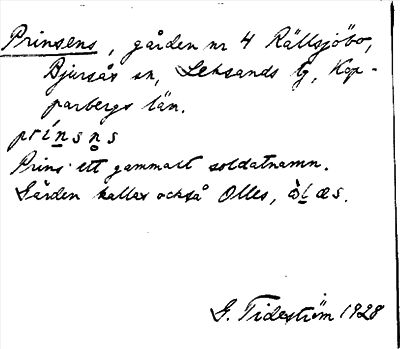 Prinsens, gården nr 4 Rällsjöbo,
Bjursås sn, Leksands tg, Kop-
parbergs län.
prínsn̥s
Prins ett gammalt soldatnamn.
Gården kallas också Olles, òlæs.
G. Tideström 1928